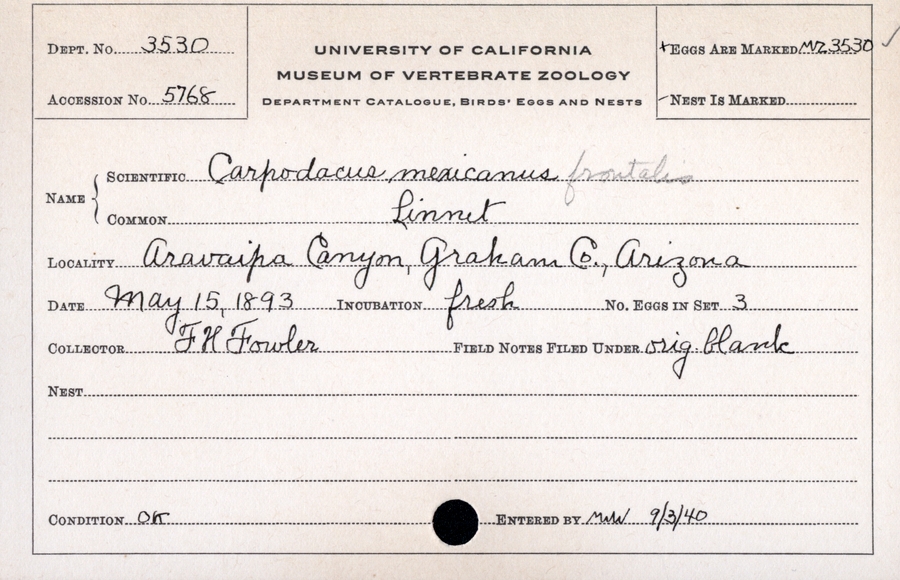 DEPT. No. 3530
ACCESSION No. 5768
UNIVERSITY OF CALIFORNIA
MUSEUM OF VERTEBRATE ZOOLOGY
DEPARTMENT CATALOGUE, BIRDS' EGGS AND NESTS
EGGS ARE MARKED MVZ3530
NEST IS MARKED
NAME
SCIENTIFIC Carpodacus mexicanus frontalis
COMMON Linnet
LOCALITY Aravaipa Canyon, Graham Co., Arizona
DATE May 15, 1893 INCUBATION fresh No. EGGS IN SET 3
COLLECTOR F H Fowler FIELD NOTES FILED UNDER orig. blank
NEST
CONDITION OK ENTERED BY 9/3/40